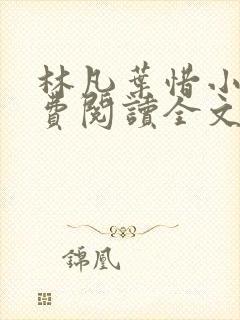 林凡葉惜小
費閱讀全文
錦凰